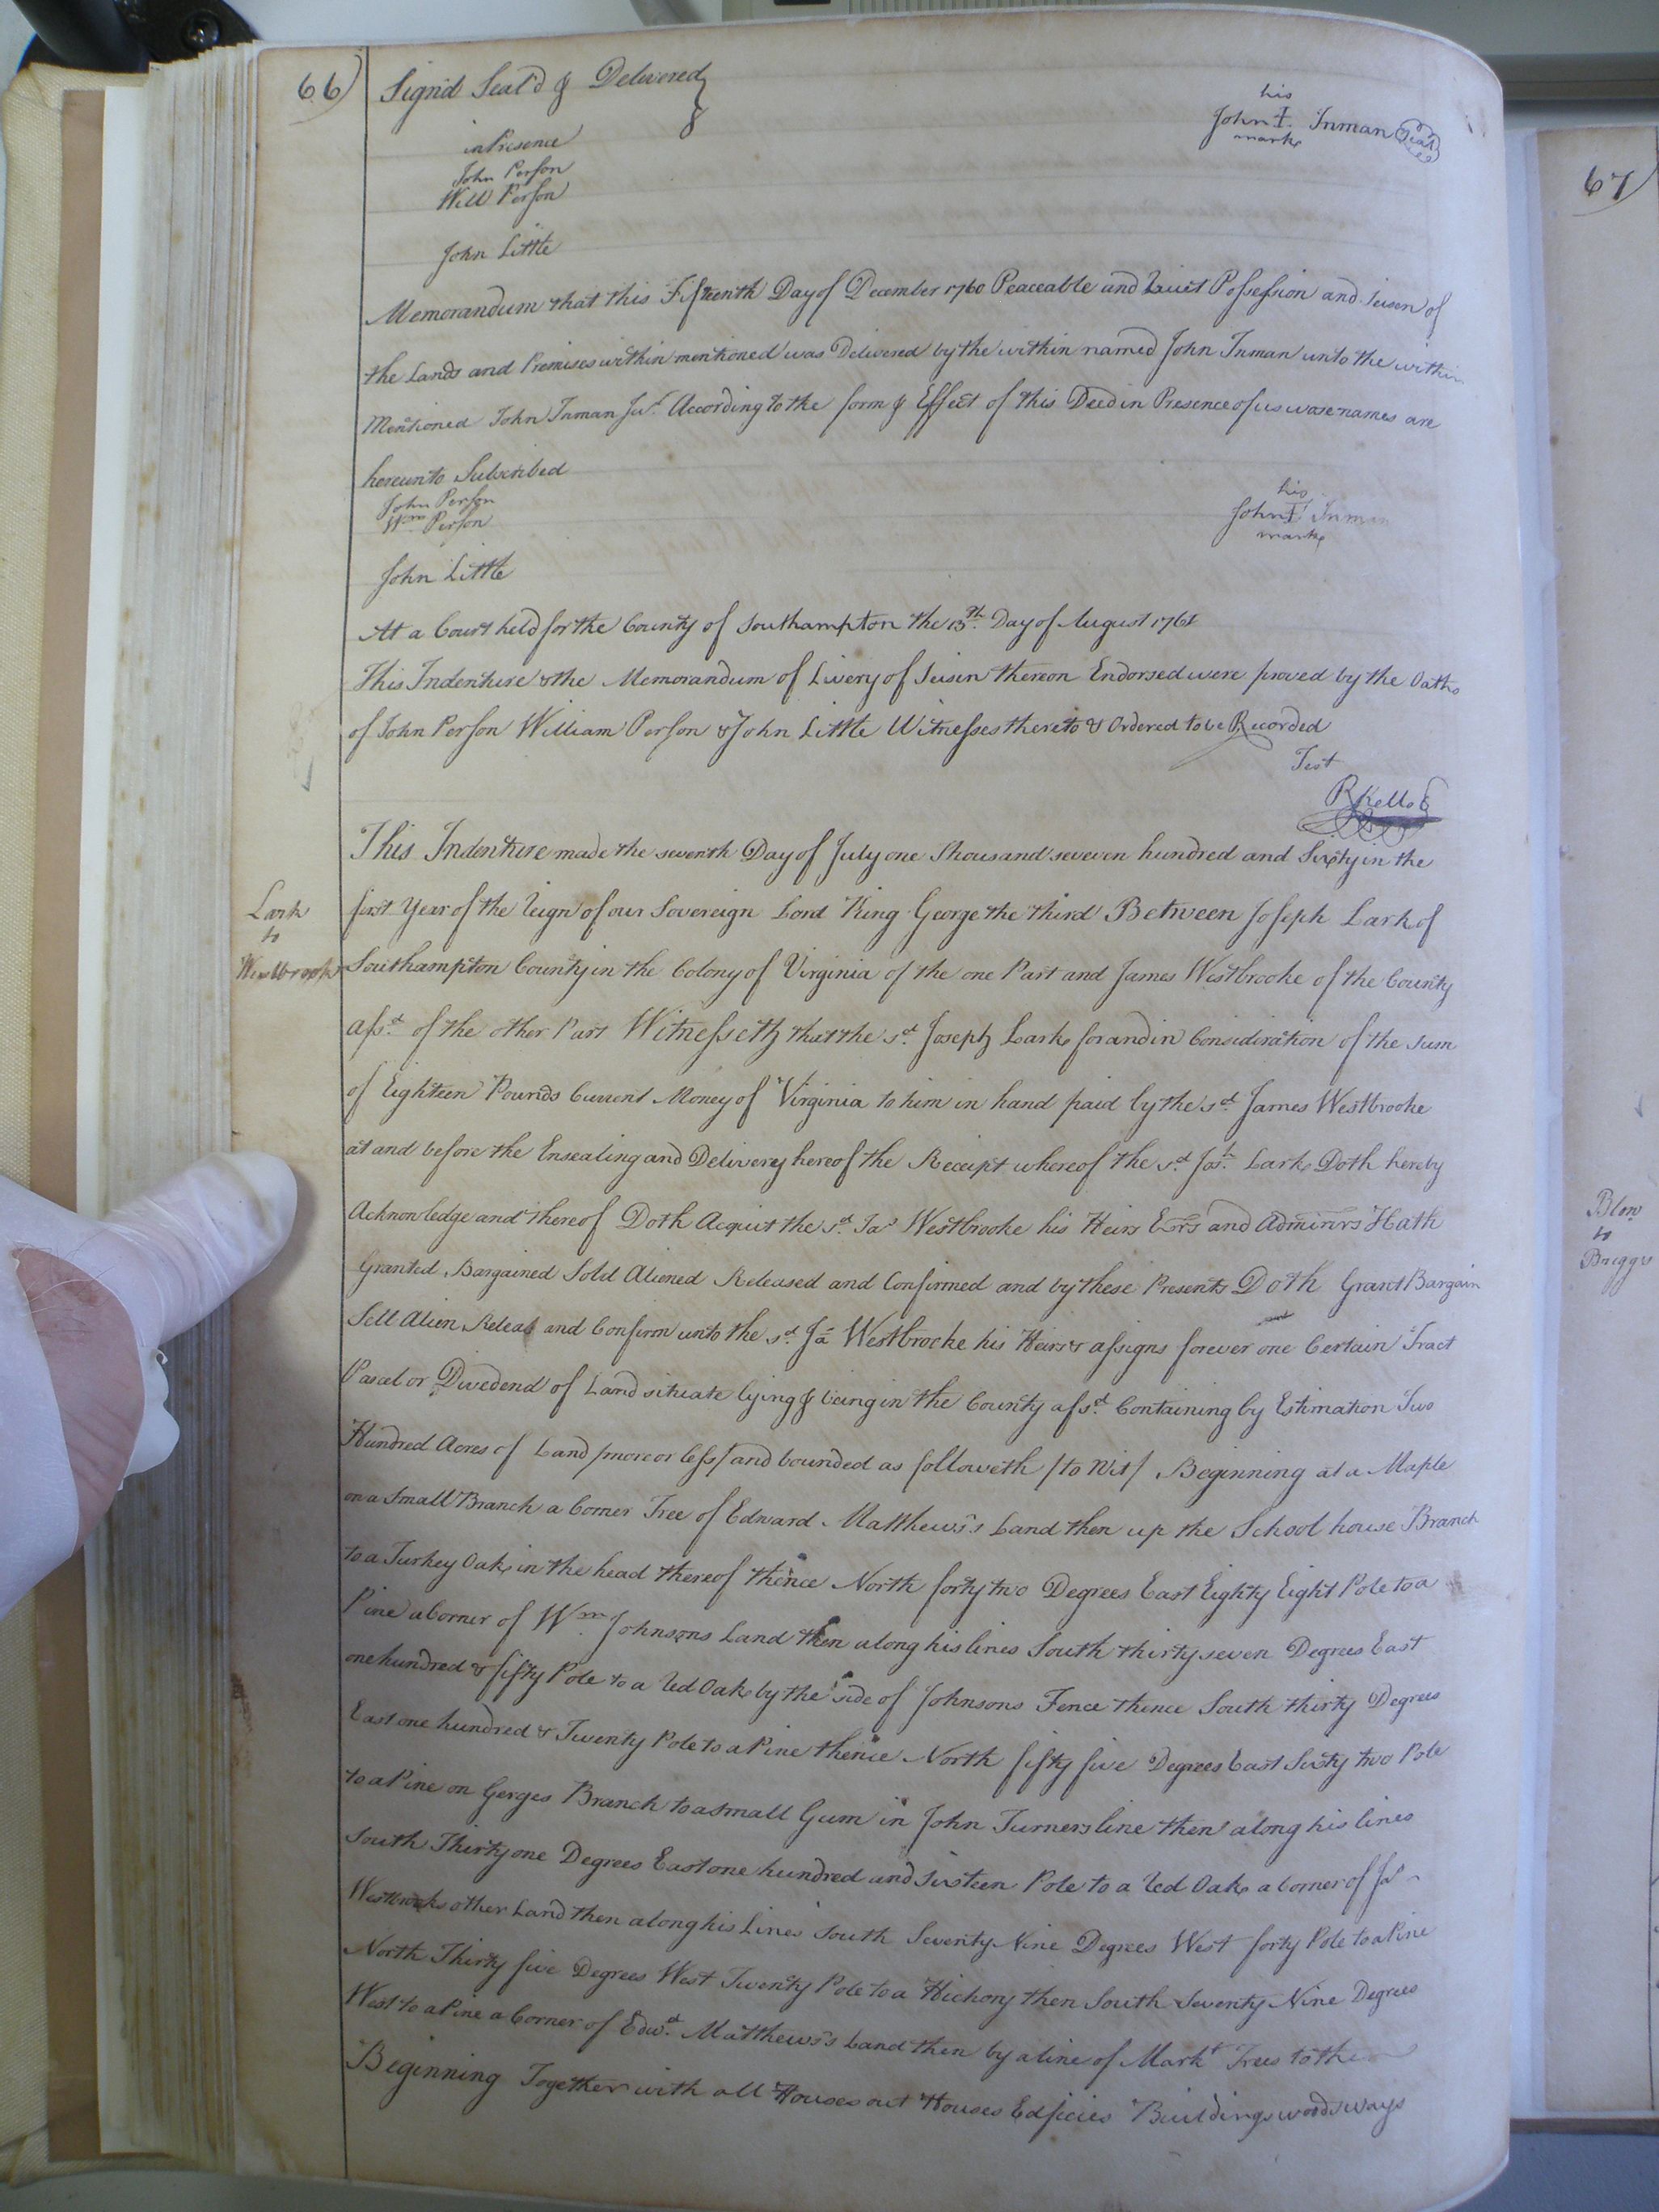 66) Sign'd Seal'd & Delivered
in Presence
John Person
Will Person
John Little
his
John I. Inman Seal
mark
Memorandum that this Fifteenth Day of December 1760 Peaceable and Quiet Possession and Seisen of
the Lands and Premises within mentioned was Delivered by the within named John Inman unto the within
Mentioned John Inman Jur. According to the form & Effect of this Deed in Presence of us wose names are
hereunto Subscribed
John Person
Wm Person
John Little
his
John I Inman
mark
At a Court held for the County of Southampton the 13th. Day of August 1761
This Indenture & the Memorandum of Livery of Seisin thereon Endorsed were proved by the Oaths
of John Person William Person & John Little Witnesses thereto & Ordered to be Recorded
Test
R Kello C
Lark
to
Westbrook
This Indenture made the seventh Day of July one thousand seveven hundred and Sixty in the
first Year of the Reign of our Sovereign Lord King George the third Between Joseph Lark of
Southampton County in the Colony of Virginia of the one Part and James Westbrooke of the County
afsd. of the other Part Witnesseth that the sd. Joseph Lark for and in Consideration of the sum
of Eighteen Pounds Current Money of Virginia to him in hand paid by the sd. James Westbrooke
at and before the Ensealing and Delivery hereof the Receipt whereof the sd. Josh. Lark Doth hereby
Acknowledge and thereof Doth Acquit the sd. Jas Westbrooke his Heirs Exrs and Adminrs Hath
Granted Bargained Sold Aliened Released and Confirmed and by these Presents Doth Grant Bargain
Sell Alien Releas and Confirm unto the sd. Ja Westbrooke his Heirs & assigns forever one Certain Tract
Parcel or Divedend of Land situate lying & being in the County afsd. Containing by Estimation Two
Hundred Acres of Land /more or less/ and bounded as followeth /to Wit/ Beginning at a Maple
on a Small Branch a Corner Tree of Edward Matthews's Land then up the School house Branch
to a Turkey Oak in the head thereof thence North forty two Degrees East Eighty Eight Pole to a
Pine a Corner of Wm. Johnsons Land then along his lines South thirty seven Degrees East
one hundred & fifty Pole to a Red Oak by the side of Johnsons Fence thence South thirty Degrees
East one hundred & Twenty Pole to a Pine thence North fifty five Degrees East Sixty two Pole
to a Pine on Gerges Branch to a small Gum in John Turners line then along his lines
South Thirty one Degrees East one hundred and sixteen Pole to a Red Oak a Corner of Jas
Westbrooks other Land then along his Lines South Seventy Nine Degrees West forty Pole to a Pine
North Thirty five Degrees West Twenty Pole to a Hickory then South Seventy Nine Degrees
West to a Pine a Corner of Edwd. Matthews's Land then by a line of Markt Trees to the
Beginning Together with all Houses out Houses Edifices Buildings woods ways
67)
Blow
to
Briggs